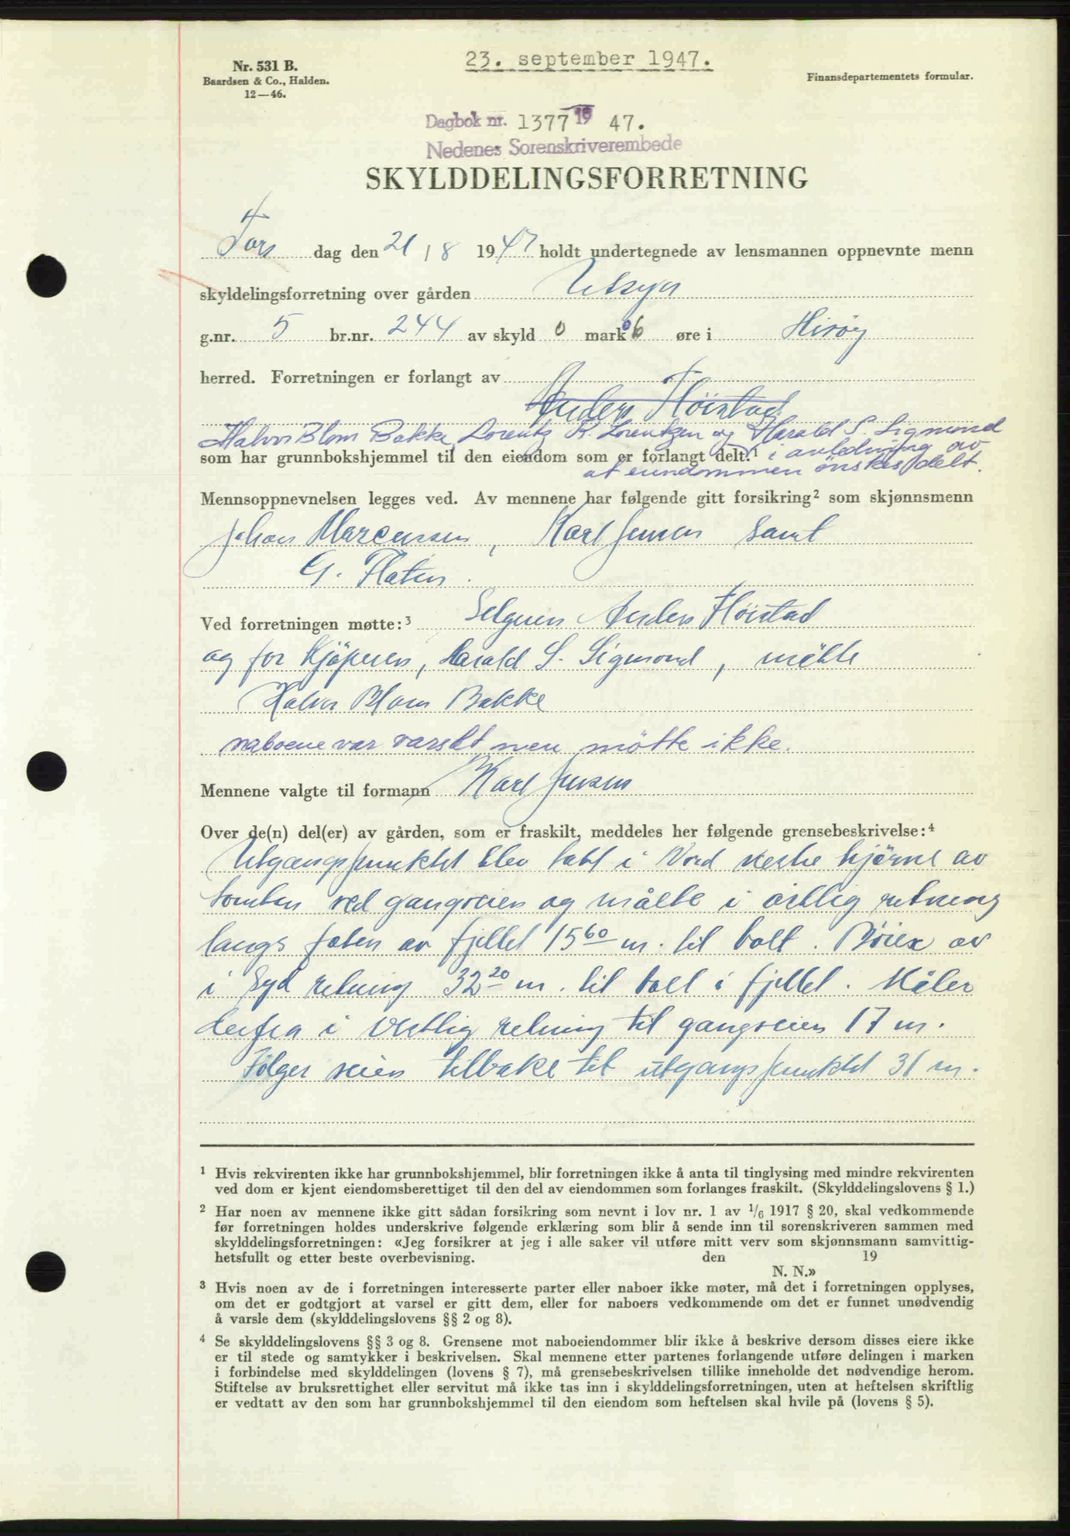 23. september 1947.
Nr. 531 B.
Baardsen & Co., Halden.
12—46.
Finansdepartementets formular.
Dagbok nr. 1377 19 47.
Nedenes Sorenskriverembede
SKYLDDELINGSFORRETNING
Tors dag den 21 / 8 1947 holdt undertegnede av lensmannen oppnevnte menn
skyldelingsforretning over gården Utsyn
g.nr. 5 br.nr. 244 av skyld 0 mark 06 øre i Hisøy
herred. Forretningen er forlangt av
Anders Fløistad
Halvor Blom Bakke Lorentz R. Lorentzen og Harald S. Sigmond
som har grunnbokshjemmel til den eiendom som er forlangt delt.¹ i anledning av
at eiendommen ønskes delt.
Mennsoppnevnelsen legges ved. Av mennene har følgende gitt forsikring² som skjønnsmenn
Johan Marcussen, Karl Jensen samt
G. Flaten.
Ved forretningen møtte:³ Selgeren Anders Fløistad
og for Kjøperen, Harald S. Sigmond, møtte
Halvor Blom Bakke
naboene var varslet men møtte ikke.
Mennene valgte til formann Karl Jensen
Over de(n) del(er) av gården, som er fraskilt, meddeles her følgende grensebeskrivelse:⁴
Utgangspunktet blev tatt i Nord vestre hjørne av
tomten ved gangveien og målte i østlig retning
langs foten av fjellet 15⁶⁰ m. til bolt. Bøier av
i Syd retning 32²⁰ m. til bolt i fjellet. Måler
derfra i vestlig retning til gangveien 17 m.
Følger veien tilbake til utgangspunktet 31 m.
¹ Hvis rekvirenten ikke har grunnbokshjemmel, blir forretningen ikke å anta til tinglysing med mindre rekvirenten
ved dom er kjent eiendomsberettiget til den del av eiendommen som forlanges fraskilt. (Skylddelingslovens § 1.)
² Har noen av mennene ikke gitt sådan forsikring som nevnt i lov nr. 1 av 1/6 1917 § 20, skal vedkommende
før forretningen holdes underskrive følgende erklæring som blir å sende inn til sorenskriveren sammen med
skylddelingsforretningen: «Jeg forsikrer at jeg i alle saker vil utføre mitt verv som skjønnsmann samvittig-
hetsfullt og etter beste overbevisning. den 19
N. N.»
³ Hvis noen av de i forretningen interesserte parter eller naboer ikke møter, må det i forretningen opplyses,
om det er godtgjort at varsel er gitt dem, eller for naboers vedkommende om det er funnet unødvendig
å varsle dem (skylddelingslovens §§ 2 og 8).
⁴ Se skylddelingslovens §§ 3 og 8. Grensene mot naboeiendommer blir ikke å beskrive dersom disses eiere ikke
er til stede og samtykker i beskrivelsen. Skal mennene etter partenes forlangende utføre delingen i marken
i forbindelse med skylddelingen (lovens § 7), må grensebeskrivelsen tillike inneholde det nødvendige herom.
Stiftelse av bruksrettighet eller servitut må ikke tas inn i skylddelingsforretningen, uten at heftelsen skriftlig
er vedtatt av den som har grunnbokshjemmel til den eiendom som heftelsen skal hvile på (lovens § 5).